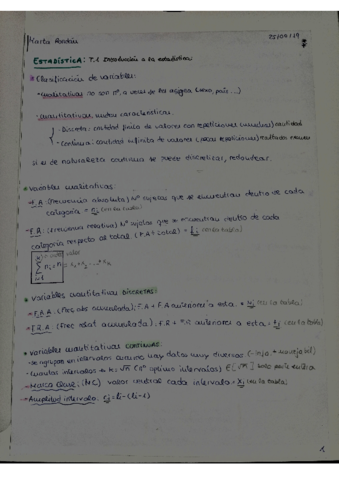 25/09/19
ESTADÍSTICA: T.1 Introducción a la estadística
Clasificación de variables:
- Cualitativas no son nº, a veces se les asigna (sexo, país...)
- Cuantitativas, miden características.
- Discreta: cantidad finita de valores con repeticiones cantidad
- Continua: cantidad infinita de valores (pocas repeticiones)
si es de naturaleza continua se puede discretizar, redondear.
variables cualitativas:
- F.A. (frecuencia absoluta) Nº sujetos que se encuentran dentro de cada
categoría = ni (en la tabla)
- F.R. (frecuencia relativa) Nº sujetos que se encuentran dentro de cada
categoría respecto al total (F.A ÷ total) = fi (en la tabla)
variables cuantitativas DISCRETAS:
- F.A.A. (Frec abs acumulada): F.A + F.A anterior a esta = Ni (en la tabla)
- F.R.A. (Frec relat acumulada): F.R + F.R anteriores a esta = Fi (en la tabla)
variables cuantitativas CONTINUAS:
- se agrupan en intervalos cuando hay datos muy diversos
- Cuantos intervalos
- Marca Clase: (MC) valor central cada intervalo = Xi (en la tabla)
- Amplitud intervalo:
1